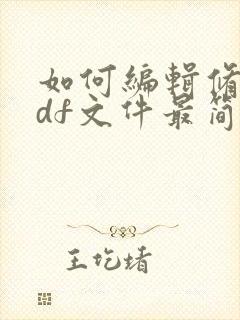 如何编辑修
df文件最简
王圪堵